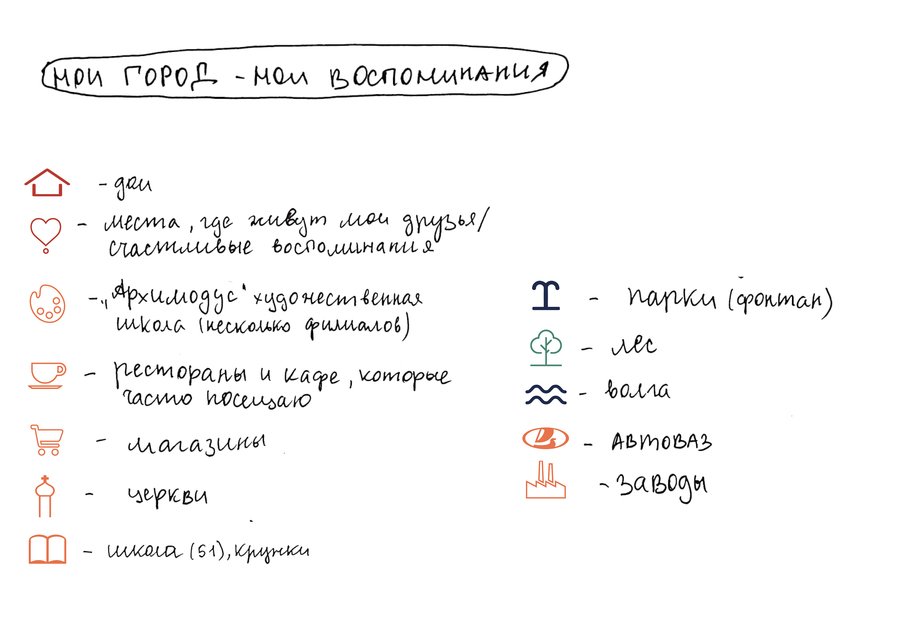 МОЙ ГОРОД - МОИ ВОСПОМИНАНИЯ
- дом
- места, где живут мои друзья/
счастливые воспоминания
- "Архимодус" художественная
школа (несколько филиалов)
- рестораны и кафе, которые
часто посещаю
- магазины
- церкви
- школа (51), кружки
- парки (фонтан)
- лес
- волга
- АВТОВАЗ
- заводы